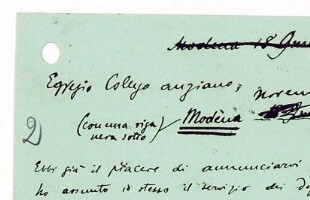 Modena 18
Egregio Collega anziano,
(con una riga
nera sotto)
Modena
2
Ebbi già il piacere di annunciarvi
ho assunto io stesso il servizio dei